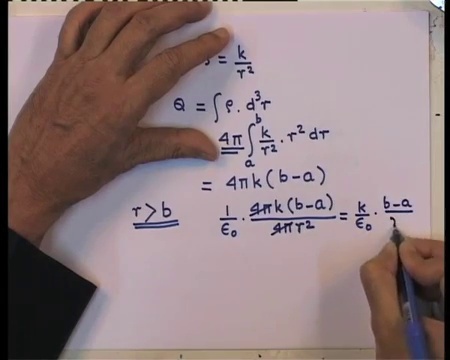 = k/r²
Q = ∫ ρ. d³r
4π ∫ₐᵇ k/r² · r² dr
= 4πk(b-a)
r>b 1/ε₀ · 4πk(b-a)/4πr² = k/ε₀ · b-a/